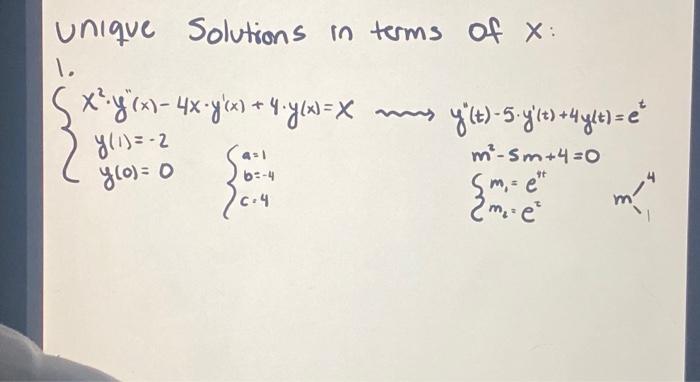 Unique Solutions in terms of x:
1.
x²·y"(x) - 4x·y'(x) + 4·y(x) = x ⟿ y"(t) - 5·y'(t) + 4y(t) = eᵗ
y(1) = -2
y(0) = 0
a=1
b=-4
c=4
m² - 5m + 4 = 0
m₁ = e⁴ᵗ
m₂ = eᵗ
m 4
1